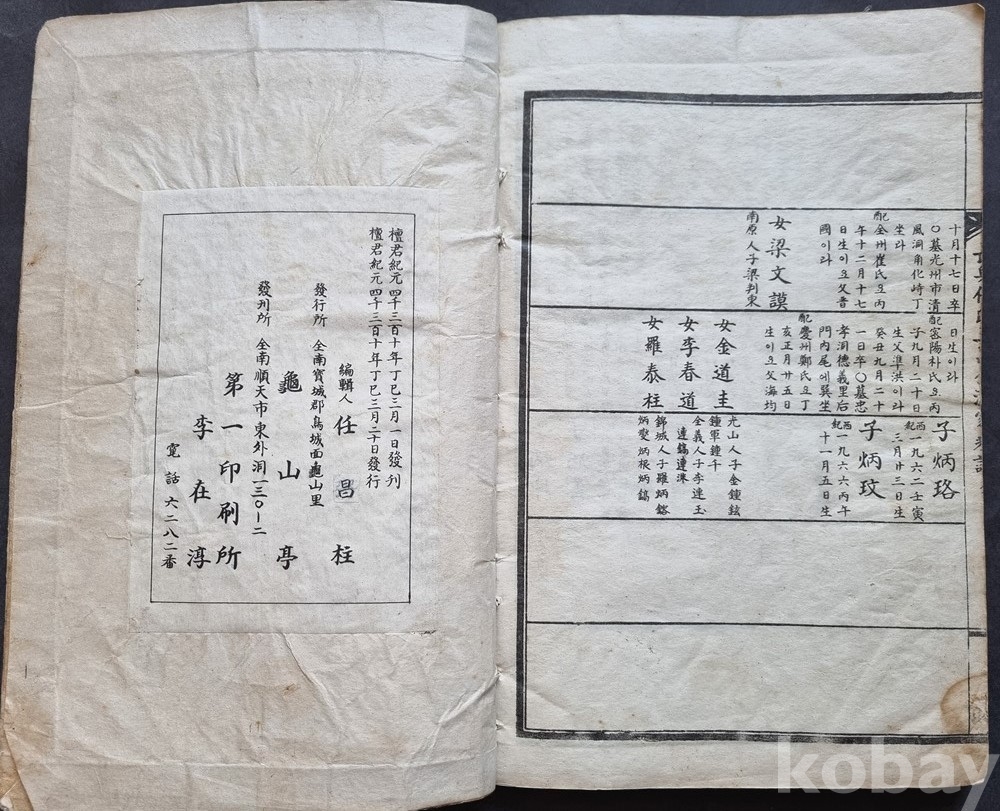 十月十七日卒
○墓光州市清
風洞角化峙丁
坐라
配全州崔氏으丙
午十二月十七
日生이으父晋
國이라
女梁文謨
南原人子梁判東
日生이라
配密陽朴氏으丙
子九月二十日
生父準洪이라
癸丑九月二十
一日卒○墓忠
孝洞德義里后
門內尾에巽坐
配慶州鄭氏으丁
亥正月廿五日
生이으父海均
女金道圭
女李春道
女羅泰柱
子炳珞
西紀一九六二壬寅
三月廿三日生
子炳玟
西紀一九六六丙午
十一月五日生
光山人子金鍾鉉
鍾軍鍾千
全義人子李連玉
連鎬連洙
錦城人子羅炳鎔
炳燮炳根炳鎬
檀君紀元四千三百十年丁巳三月一日發刊
檀君紀元四千三百十年丁巳三月二十日發行
編輯人 任昌柱
發行所 全南寶城郡鳥城面龜山里
龜山亭
發刊所 全南順天市東外洞一三○ー二
第一印刷所
李在淳
電話 六二八二番
kobay